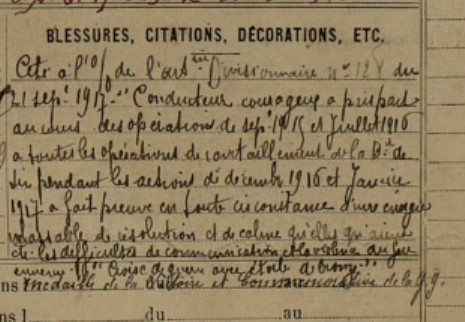 BLESSURES, CITATIONS, DÉCORATIONS, ETC.
Cité à l'O/ de l'art^ie Divisionnaire n° 128 du
21 sept. 1917 " Conducteur courageux a pris part
au cours des opération de sept 1915 et Juillet 1916
a toutes les opérations de ravitaillement de la B^ie de
tir pendant les actions de décembre 1916 et Janvier
1917 a fait preuve en toute circonstance d'une énergie
remarquable de résolution et de calme qu'elles qu'aient
été les difficultés de communication et la violence du feu
ennemi " " Croix de guerre avec étoile de bronze "
ns Médaille de la Victoire et Commémorative de la G.G.
ns l du au